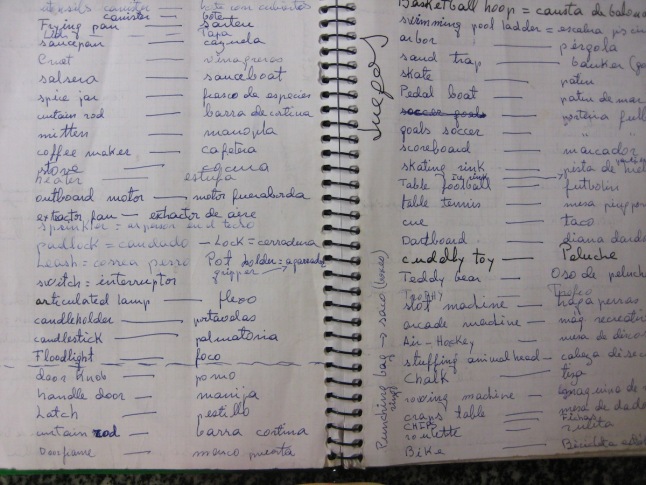 utensils canister — bote con cubiertos
canister — bote
Frying pan — sarten
Lid — Tapa
saucepan — cazuela
Cruet — vinagreras
salsera — sauceboat
spice jar — frasco de especies
curtain rod — barra de cortina
mitten — manopla
coffee maker — cafetera
stove — cocina
heater — estufa
outboard motor — motor fueraborda
extractor fan — extractor de aire
sprinkler = espersor en el techo
padlock = candado — Lock = cerradura
Leash = correa perro Pot holder = agarrador
gripper →
switch = interruptor
articulated lamp — flexo
candleholder — portavelas
candlestick — palmatoria
Floodlight — foco
door knob — pomo
handle door — manija
Latch — pestillo
curtain rod — barra cortina
Doorframe — marco puerta
Juegos
Punching bag → saco (boxeo)
Basketball hoop = canasta de balonc
swimming pool ladder = escalera piscin
arbor — pérgola
sand trap — bunker (go
skate — patin
Pedal boat — patin de mar
soccer goals — porteria futb
goals soccer — " "
scoreboard — marcador
skating rink — pista de hiel
Table football — futbolin
table tennis — mesa ping pon
cue — taco
Dartboard — diana dardo
cuddly toy — Peluche
Teddy bear — Oso de peluche
Trophy — Trofeo
slot machine — tragaperras
arcade machine — maq recreativ
Air-Hockey — mesa de disco
stuffing animal head — cabeza disec
Chalk — tiza
rowing machine — maquina de r
craps table — mesa de dado
CHIPS — Fichas
roulette — ruleta
Bike — Bicicleta está